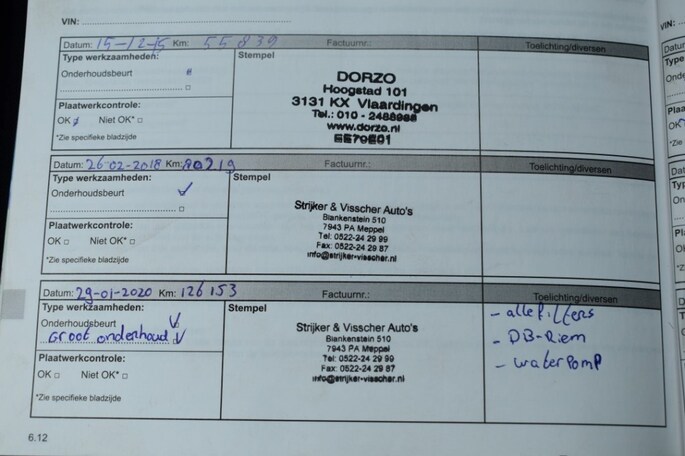 VIN:
Datum: 15-12-15 Km: 55839 Factuurnr.: Toelichting/diversen
Type werkzaamheden: Stempel
Onderhoudsbeurt
Plaatwerkcontrole:
OK Niet OK*
*Zie specifieke bladzijde
DORZO
Hoogstad 101
3131 KX Vlaardingen
Tel.: 010 -
www.dorzo.nl
Datum: 26-02-2018 Km: 80219 Factuurnr.: Toelichting/diversen
Type werkzaamheden: Stempel
Onderhoudsbeurt
Plaatwerkcontrole:
OK Niet OK*
*Zie specifieke bladzijde
Strijker & Visscher Auto's
Blankenstein 510
7943 PA Meppel
Tel: 0522-24 29 99
Fax: 0522-24 29 87
info@strijker-visscher.nl
Datum: 29-01-2020 Km: 126153 Factuurnr.: Toelichting/diversen
Type werkzaamheden: Stempel
Onderhoudsbeurt
Groot onderhoud
Plaatwerkcontrole:
OK Niet OK*
*Zie specifieke bladzijde
Strijker & Visscher Auto's
Blankenstein 510
7943 PA Meppel
Tel: 0522-24 29 99
Fax: 0522-24 29 87
info@strijker-visscher.nl
- alle filters
- DB-Riem
- waterpomp
6.12
VIN: